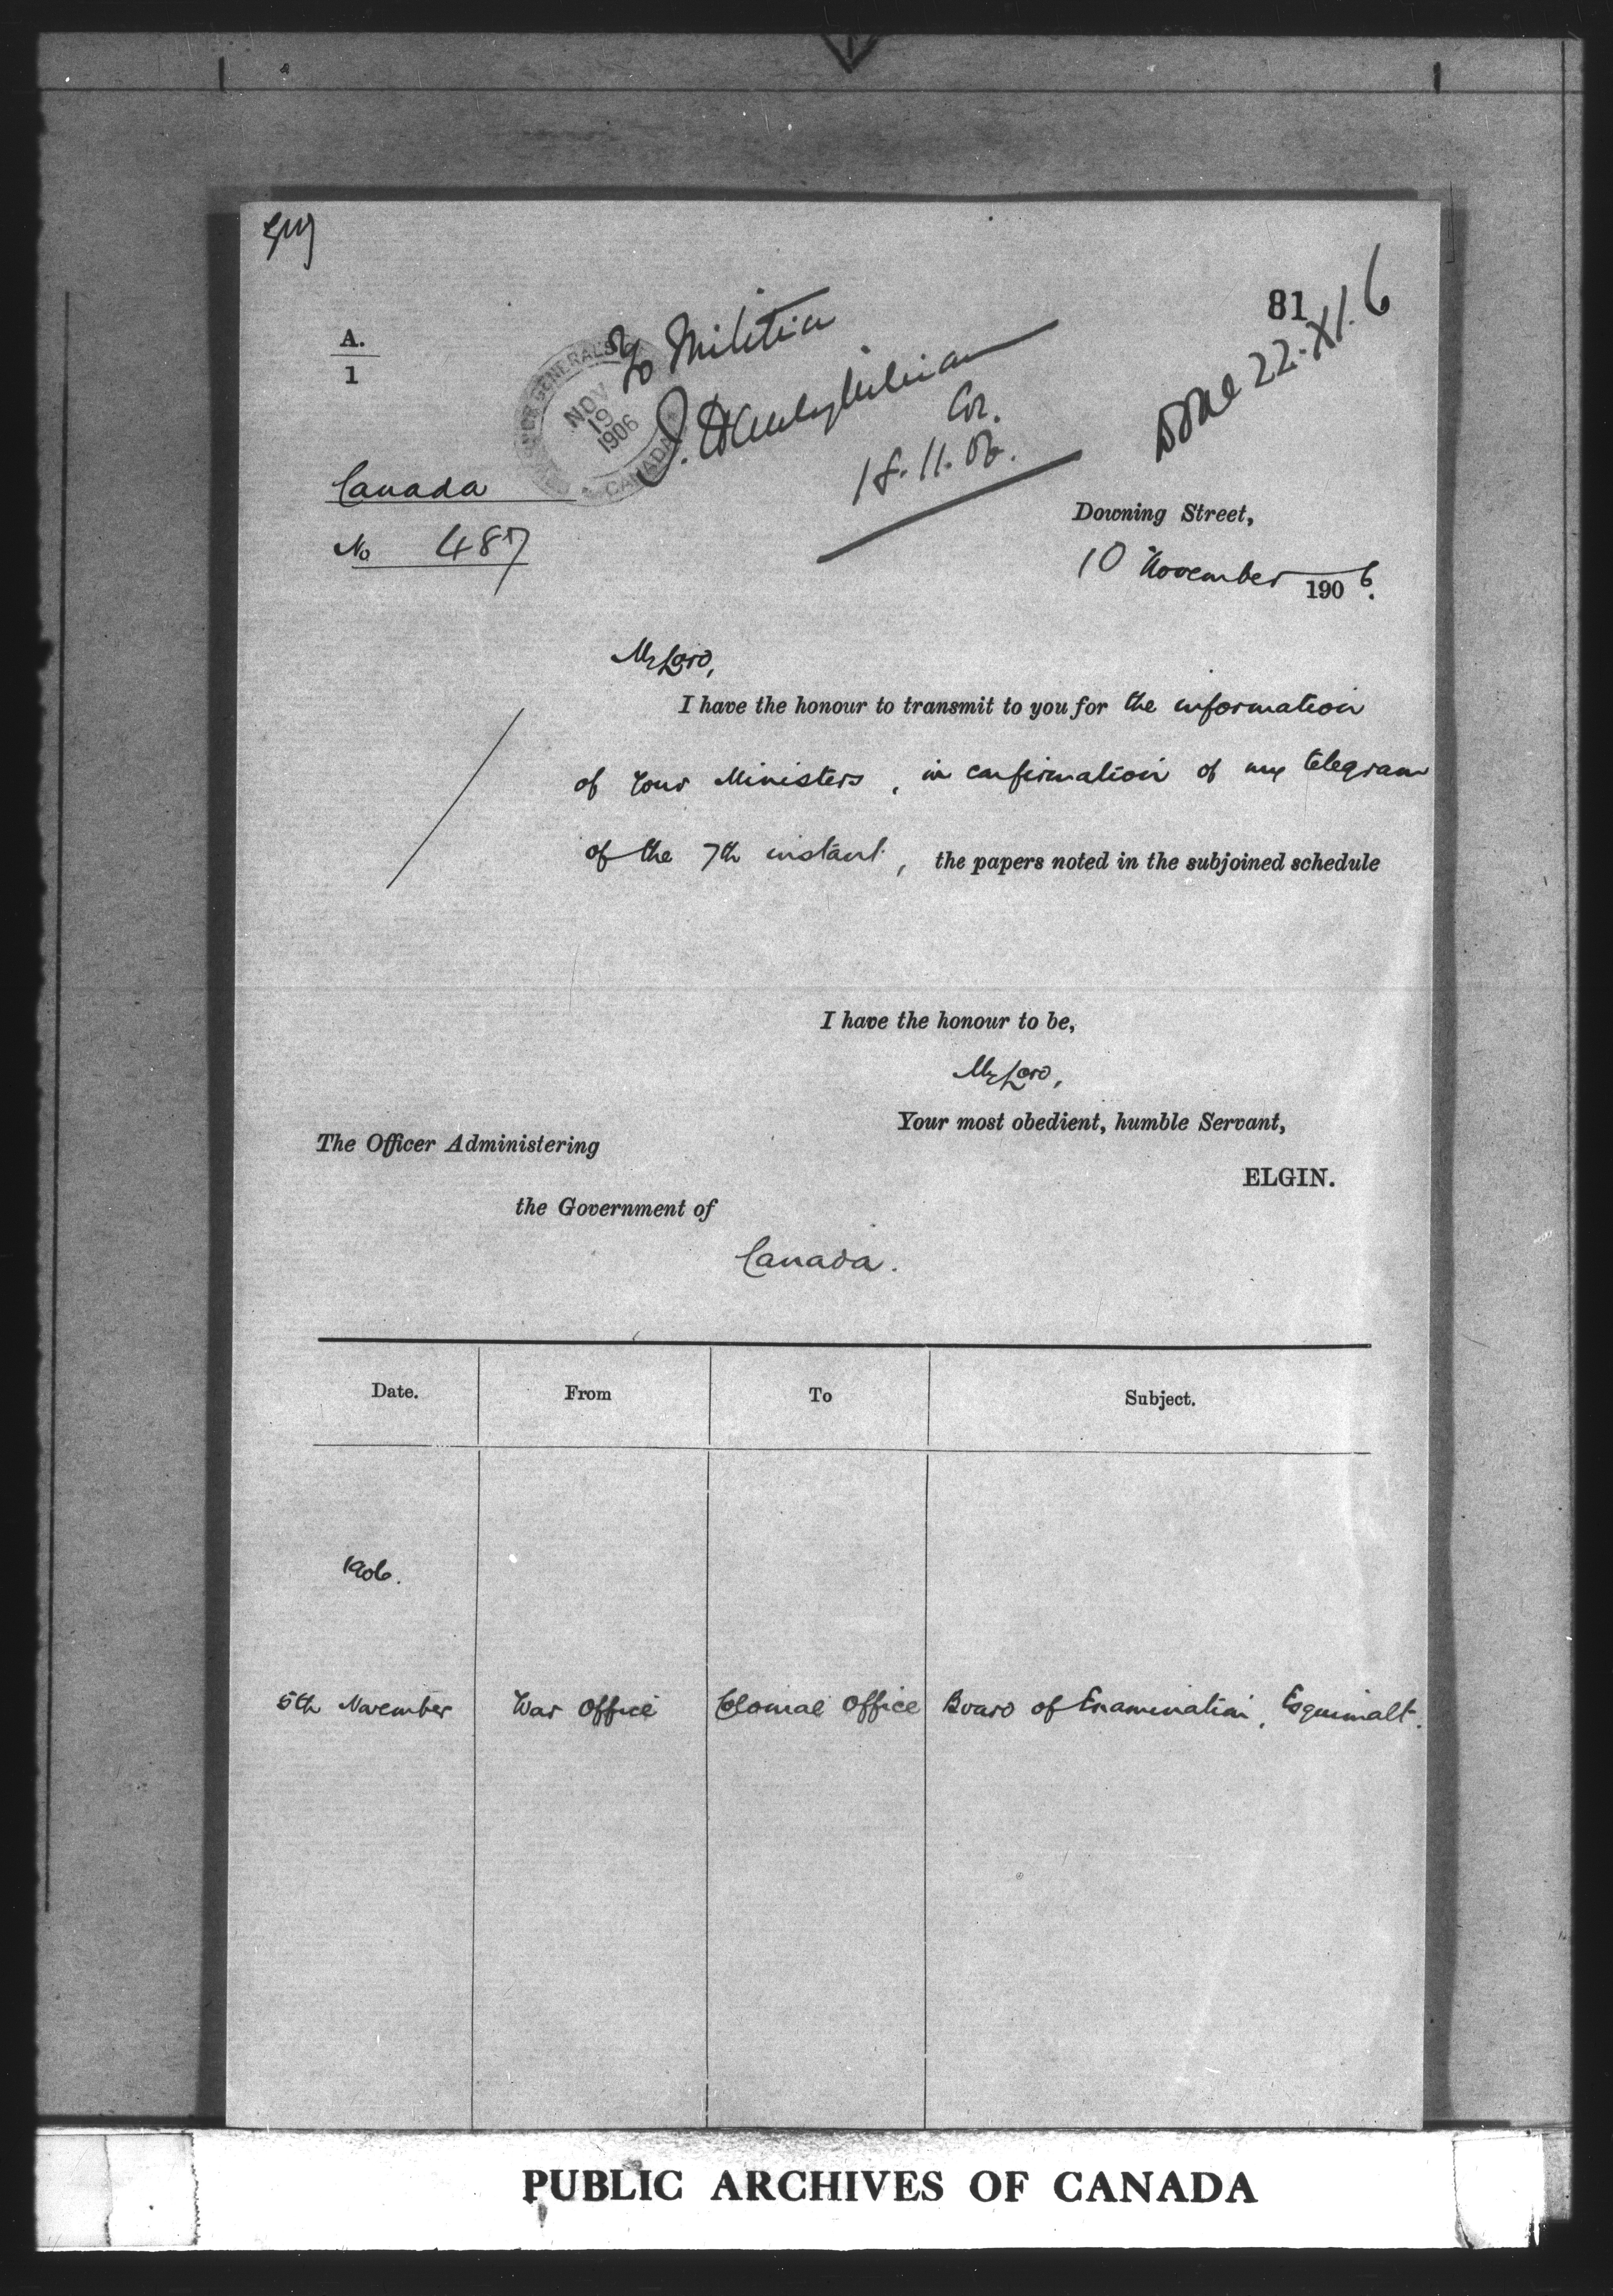 81
A.
1
To Militia
GENERAL'S
NOV
19
1906
CANADA
18.11.06.
Done 22.XI.6
Canada
No 487
Downing Street,
10 November 1906.
My Lord,
I have the honour to transmit to you for the information
of Your Ministers, in confirmation of my telegram
of the 7th instant, the papers noted in the subjoined schedule
I have the honour to be,
My Lord,
Your most obedient, humble Servant,
ELGIN.
The Officer Administering
the Government of
Canada.
Date. From To Subject.
1906.
5th November War Office Colonial Office Board of Examination, Esquimalt.
PUBLIC ARCHIVES OF CANADA